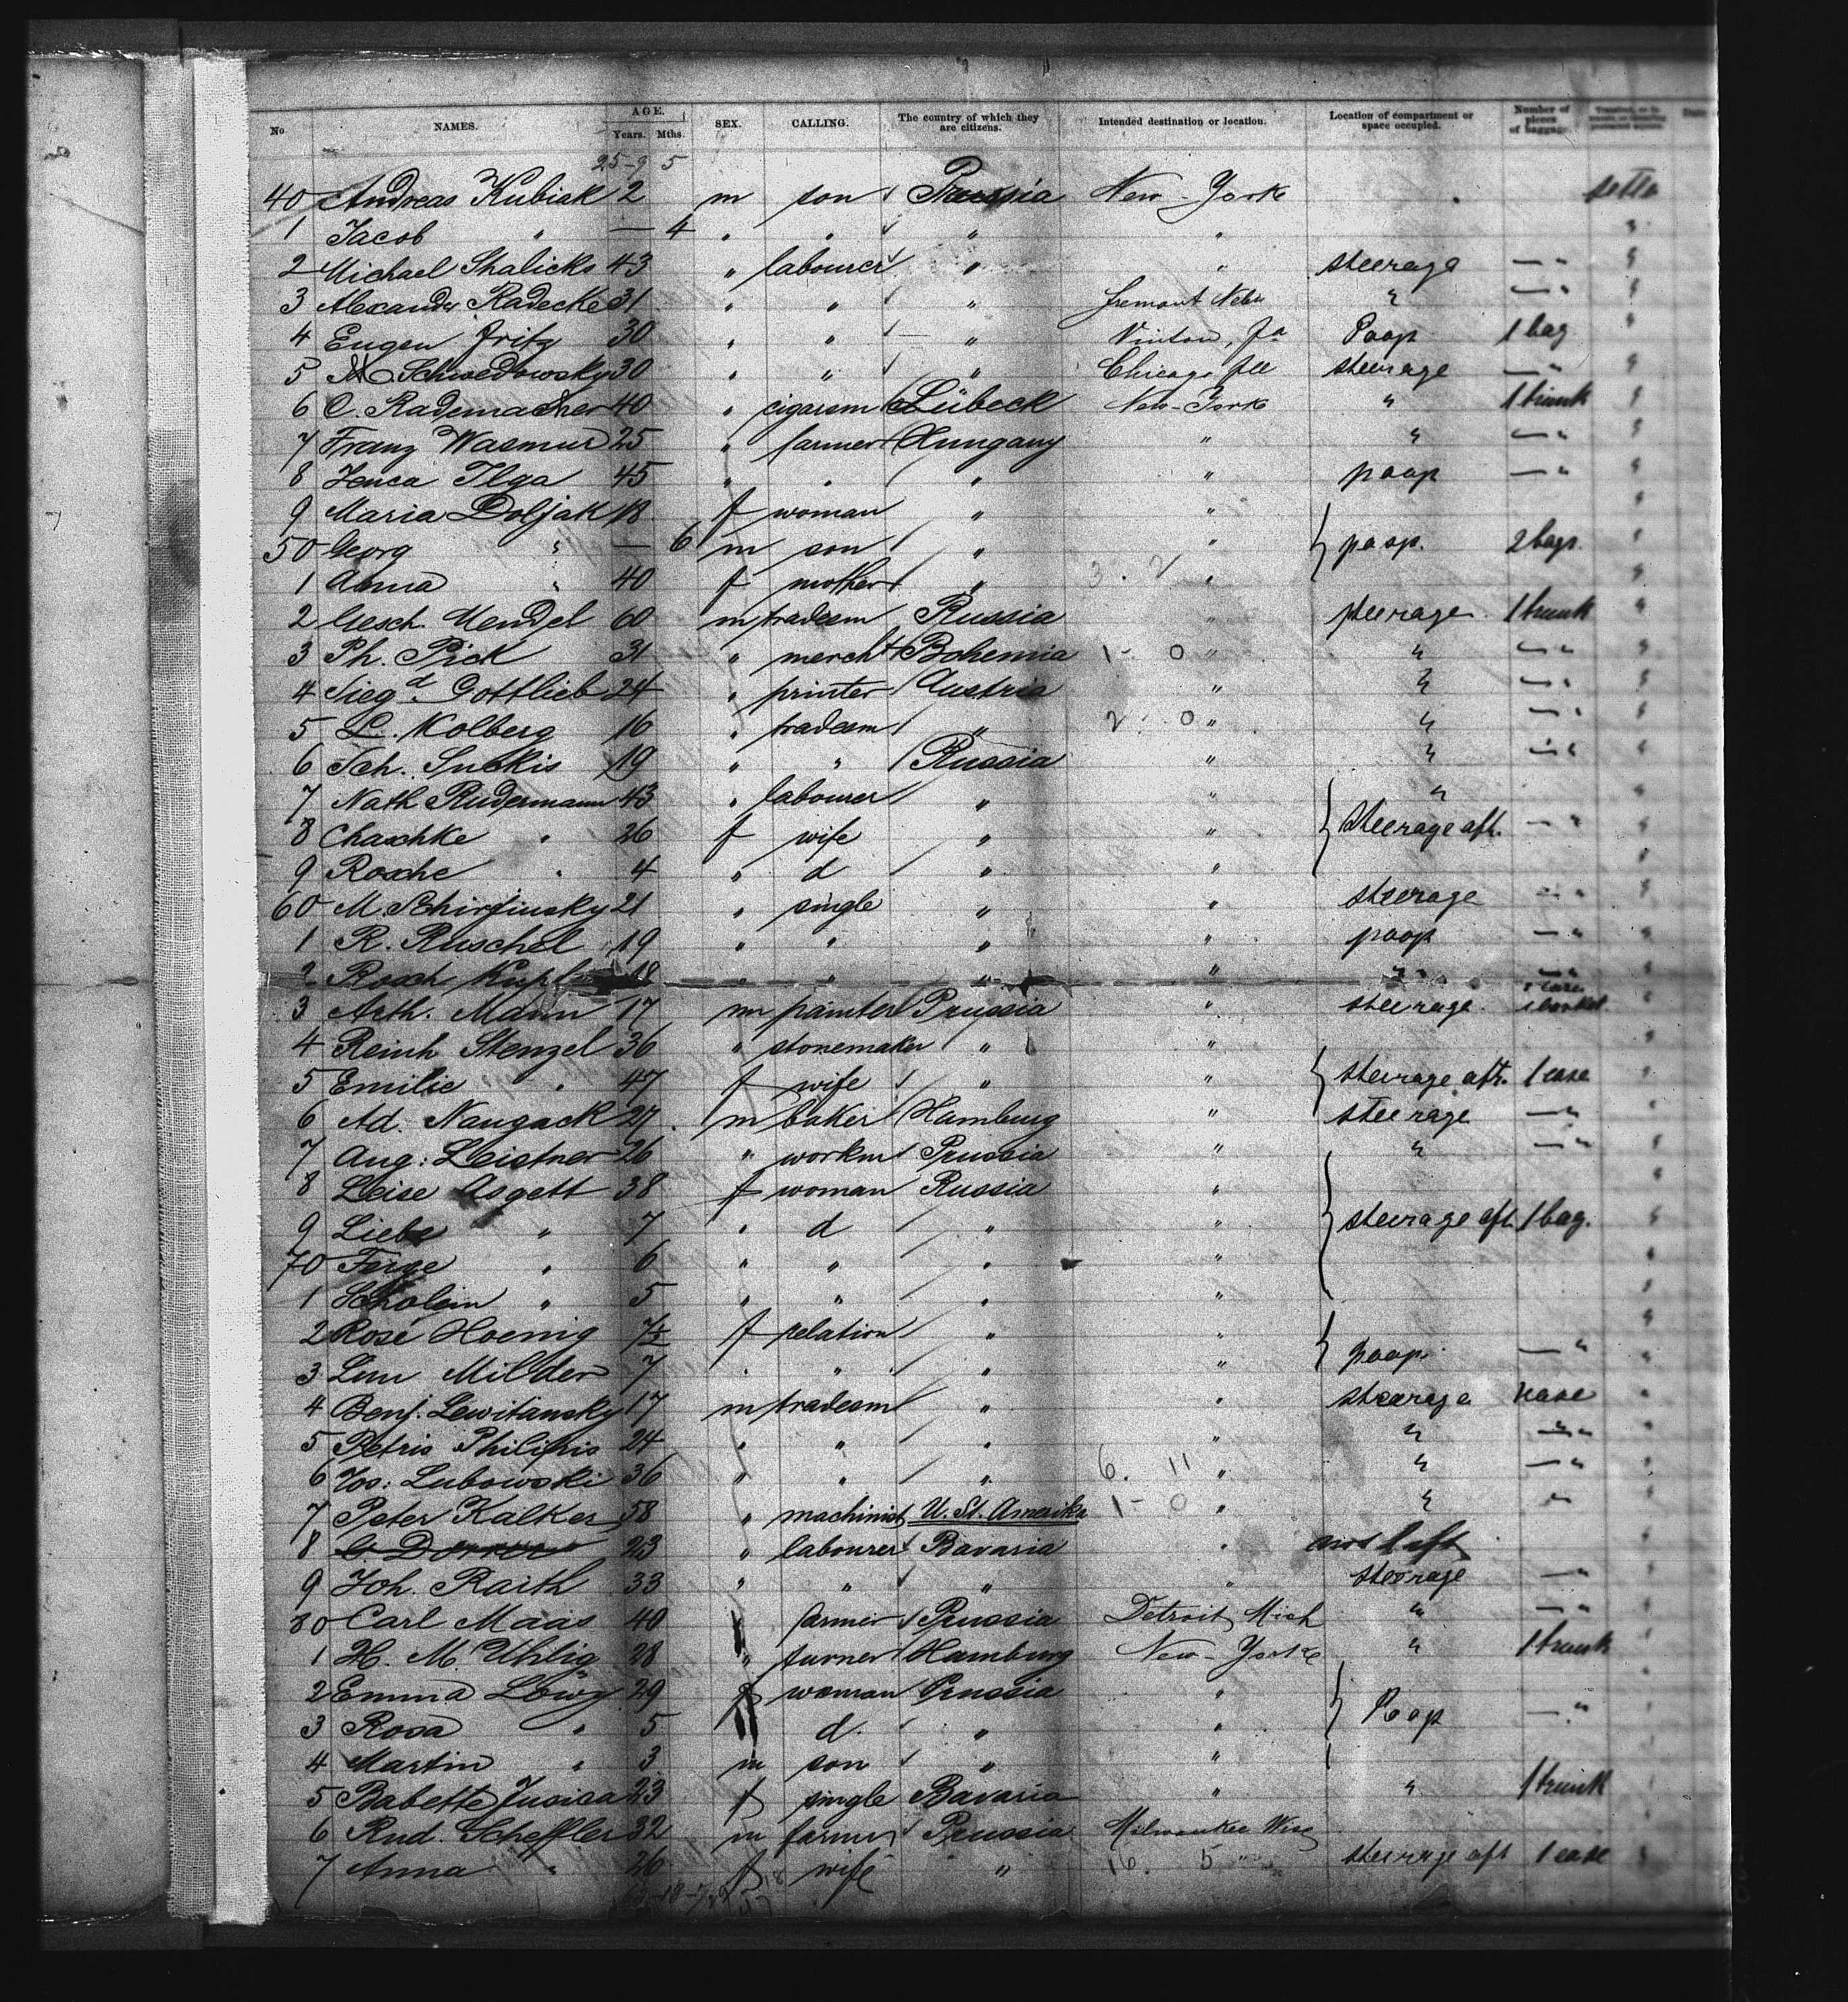 No NAMES. AGE. Years. Mths. SEX. CALLING. The country of which they are citizens. Intended destination or location. Location of compartment or space occupied. Number of pieces of baggage
25-9 5
40 Andreas Kubiak 2 m son Prussia New-York
1 Jacob " — 4 " " " "
2 Michael Skalicks 43 " labourer " " steerage — "
3 Alexander Radecke 31 " " " Fremont Nebr " — "
4 Eugen Fritz 30 " " " Vinton, Ja Poop 1 bag "
5 Schwedowsky 30 " " " Chicago Ill steerage — "
6 C. Rademacher 40 " cigarsm Lübeck New-York " 1 trunk "
7 Franz Wasmur 25 " farmer Hungary " " — "
8 Jenca Ilga 45 " " " " poop — "
9 Maria Doljak 18 f woman " "
50 Georg " — 6 m son " " poop. 2 bags. "
1 Anna " 40 f mother " "
2 Gesch. Mendel 60 m tradesm Russia " steerage 1 trunk "
3 Ph. Pick 31 " mercht Bohemia 1-0 " " — "
4 Siegd. Gottlieb 24 " printer Austria " " — "
5 L. Kolberg 16 " tradesm " 2. 0 " " — "
6 Sch. Suckis 19 " " Russia " " — "
7 Nath Rudermann 43 " labourer " " "
8 Chaschke " 26 f wife " " Steerage aft. — "
9 Rosche " 4 " d " "
60 M. Schirfinsky 21 " single " " steerage — "
1 R. Ruschel 19 " " " " poop — "
2 Rosch 18 " " " " " — "
3 Arth. Mann 17 m painter Prussia " steerage 1 case
4 Reinh Stenzel 36 " stonemaker " "
5 Emilie " 47 f wife " " steerage aft. 1 case "
6 Ad. Naugack 27 m baker Hamburg " steerage — "
7 Aug: Leistner 26 " workm Prussia " " — "
8 Leise Asgett 38 f woman Russia "
9 Liebe " 7 " d " " steerage aft 1 bag. "
70 Feige " 6 " " " "
1 Scholem " 5 " " " "
2 Rosé Hoenig 7½ f relation " "
3 Milder 7 " " " " poop. — "
4 Benj. Lewitansky 17 m tradesm " " steerage 1 case "
5 Petris Philipis 24 " " " " " — "
6 Jos: Lubowski 36 " " " 6. 11 " " — "
7 Peter Kalker 58 " machinist U. St. Amerika 1-0 " " "
8 23 " labourer Bavaria "
9 Joh. Raith 33 " " " " steerage — "
80 Carl Maas 40 " farmer Prussia Detroit, Mich " — "
1 H. M. Uhlig 28 " turner Hamburg New-York " 1 trunk "
2 Emma Löwy 29 f woman Prussia "
3 Rosa " 5 " d. " " Poop — "
4 Martin " 3 m son " "
5 Babette 23 f single Bavaria " " 1 trunk
6 Rud. Scheffler 32 m farmer Prussia Milwaukee Wisc
7 Anna " 26 f wife " 16. 5 " steerage aft 1 case